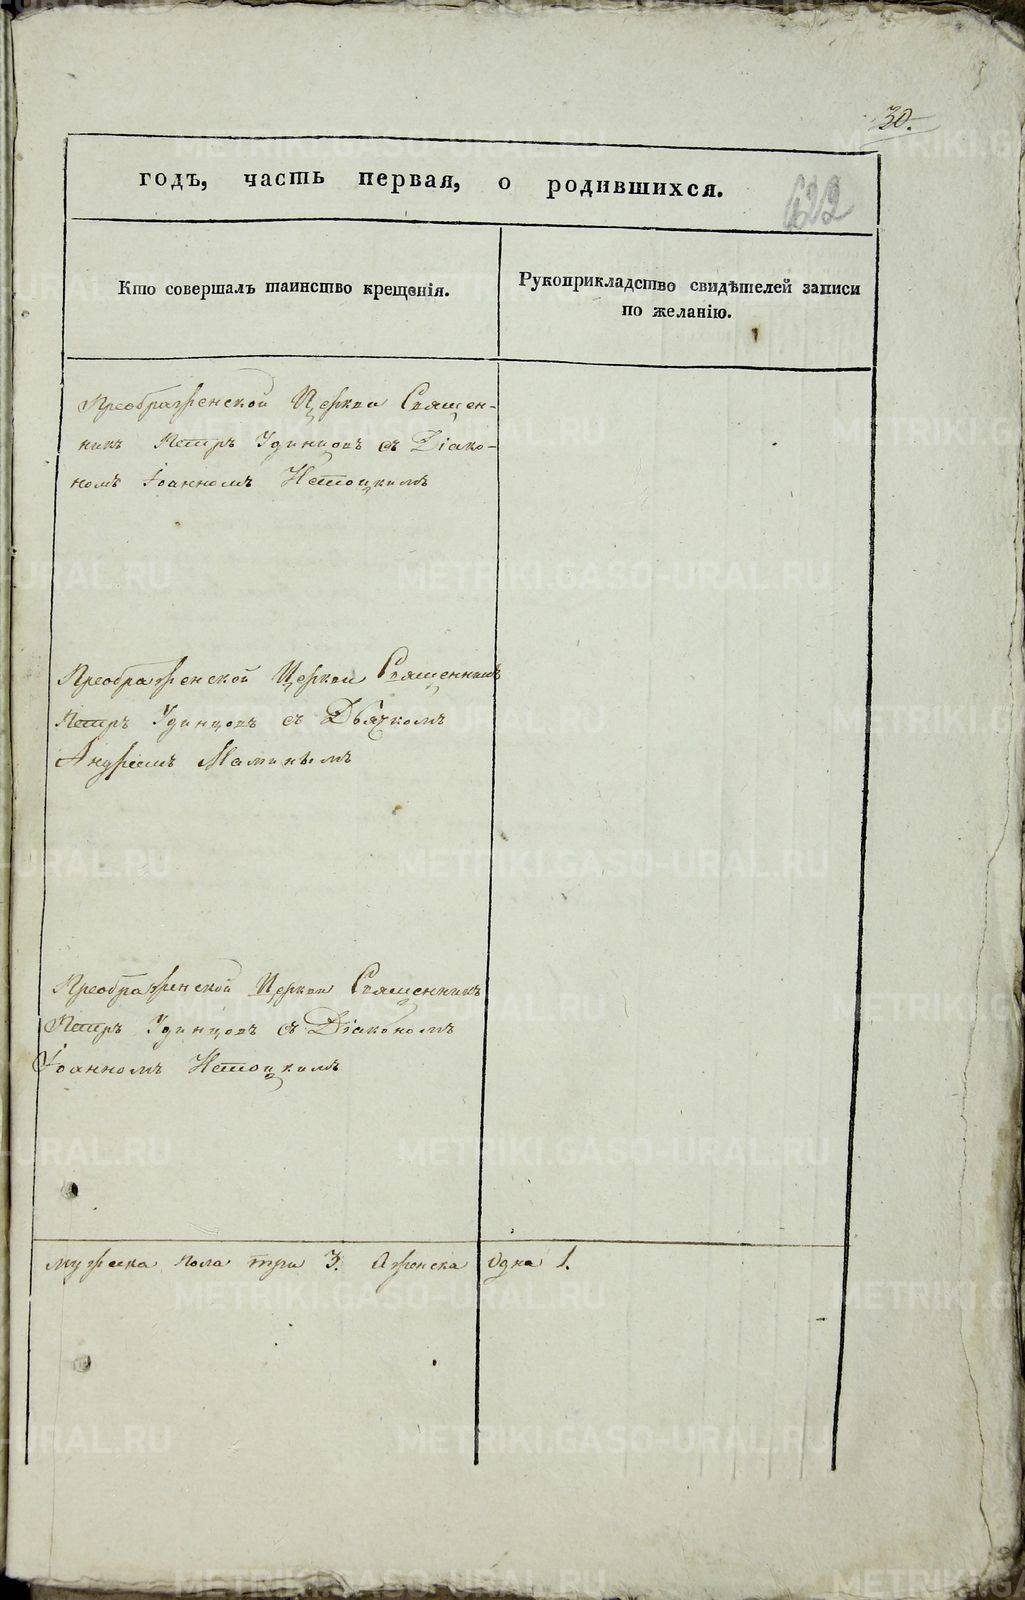 30.
годъ, часть первая, о родившихся.
622
Кто совершалъ таинство крещенія.
Рукоприкладство свидѣтелей записи
по желанію.
Преображенской Церкви Священ-
никъ Петръ Удинцовъ съ Діако-
номъ Іоанномъ
Преображенской Церкви Священникъ
Петръ Удинцовъ съ Дьячкомъ
Андреемъ Маминымъ
Преображенской Церкви Священникъ
Петръ Удинцовъ съ Діакономъ
Іоанномъ
мужеска пола три 3. А женска одна 1.
METRIKI.GASO-URAL.RU